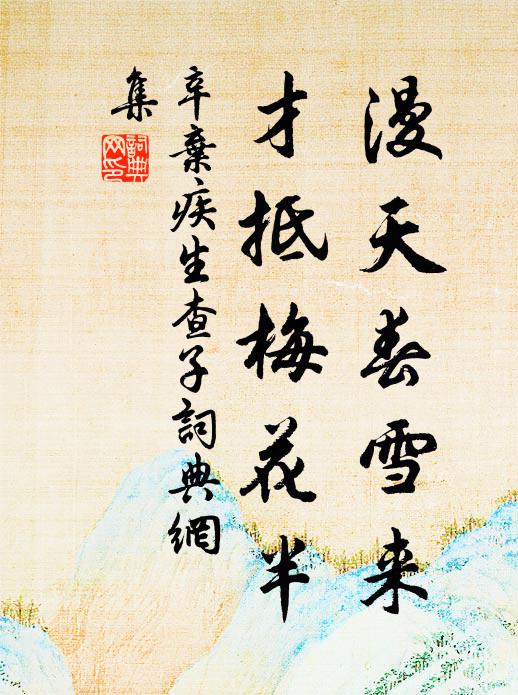 漫天春雪来
才抵梅花半
辛棄疾生查子詞典網
集
詞典
网印